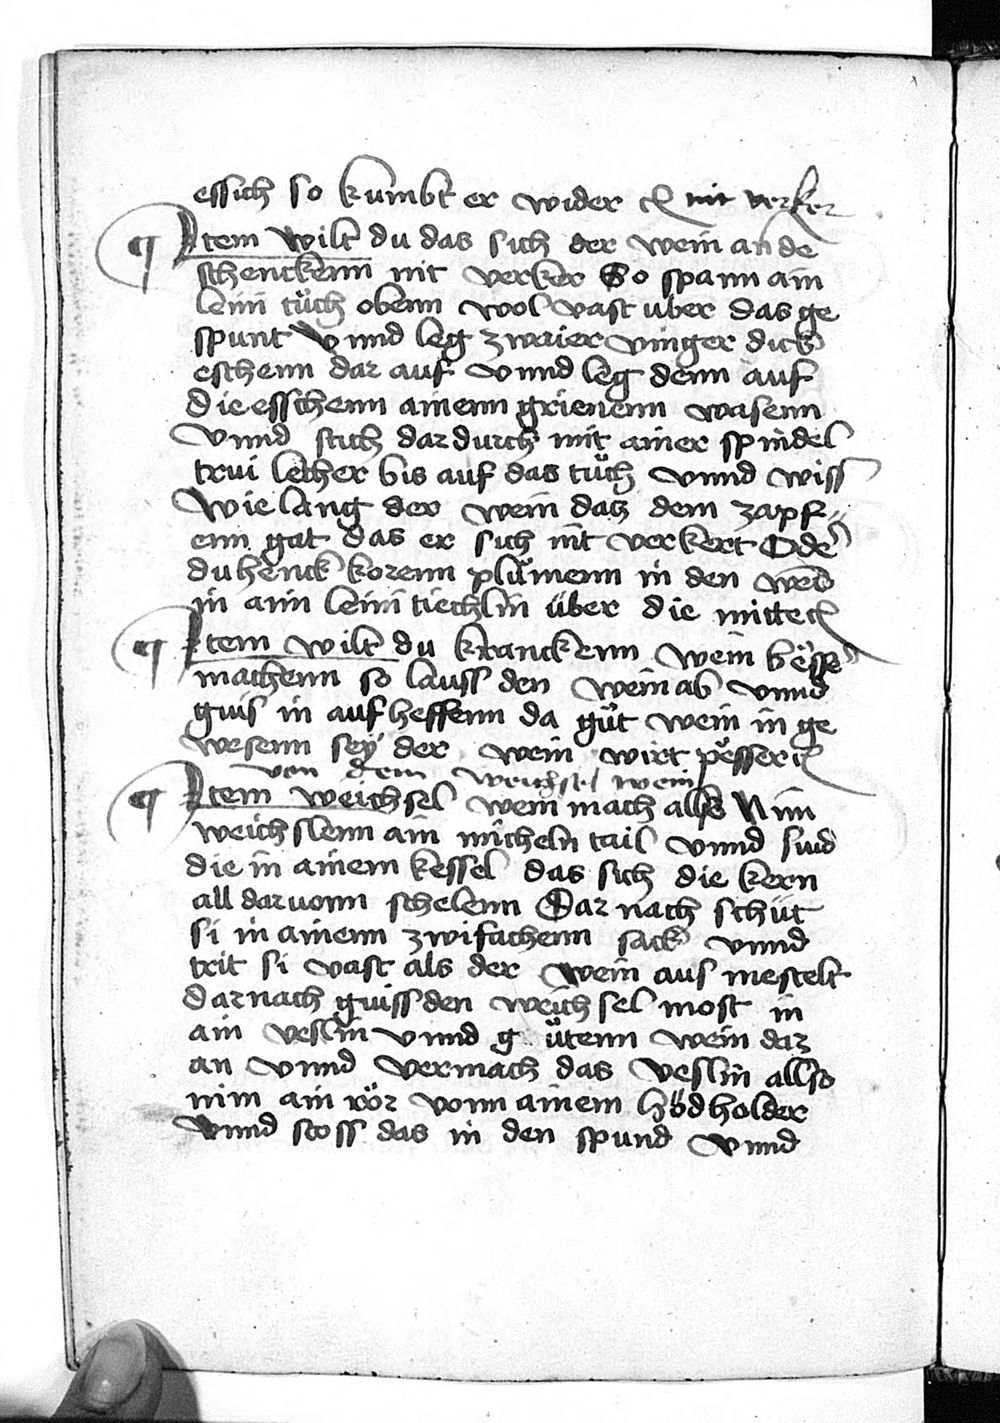 essich so kumbt er wider nit verker
¶ Item wilt du das sich der wein an de
schenckenn nit verker So spann ain
leini tüch obenn wol vast uber das ge
spunt vnnd leg zwaier vinger dick
eschenn dar auf vnnd leg denn auf
die esschenn ainenn grienenn wasenn
vnnd stich dar durch mit ainer spindel
trui lecher bis auf das tüch vnnd wiss
wie lang der wein daz dem zapf„
enn gat das er sich nit verkert Oder
du henck korenn plümenn in den wein
in ain leini tiechlin über die mitte
¶ Item wilt du kranckenn wein besser
machenn so lauss den wein ab vnnd
guis in auf heffenn da güt wein in ge
wesenn sey der wein wirt pesser
von dem weichsel wein
¶ Item weichsel wein mach allso Nim
weichslenn ain micheln tail vnnd sind
die in ainem kessel das sich die kern
all daruonn schelenn Dar nach schüt
si in ainenn zwifachenn sack vnnd
trit si vast als der wein aus mestelt
darnach guiss den weichsel most in
ain veslin vnnd g ütenn wein daz
an vnnd vermach das veslin allso
nim ain rör vonn ainem hödholder
vnnd stoss das in den spund vnnd